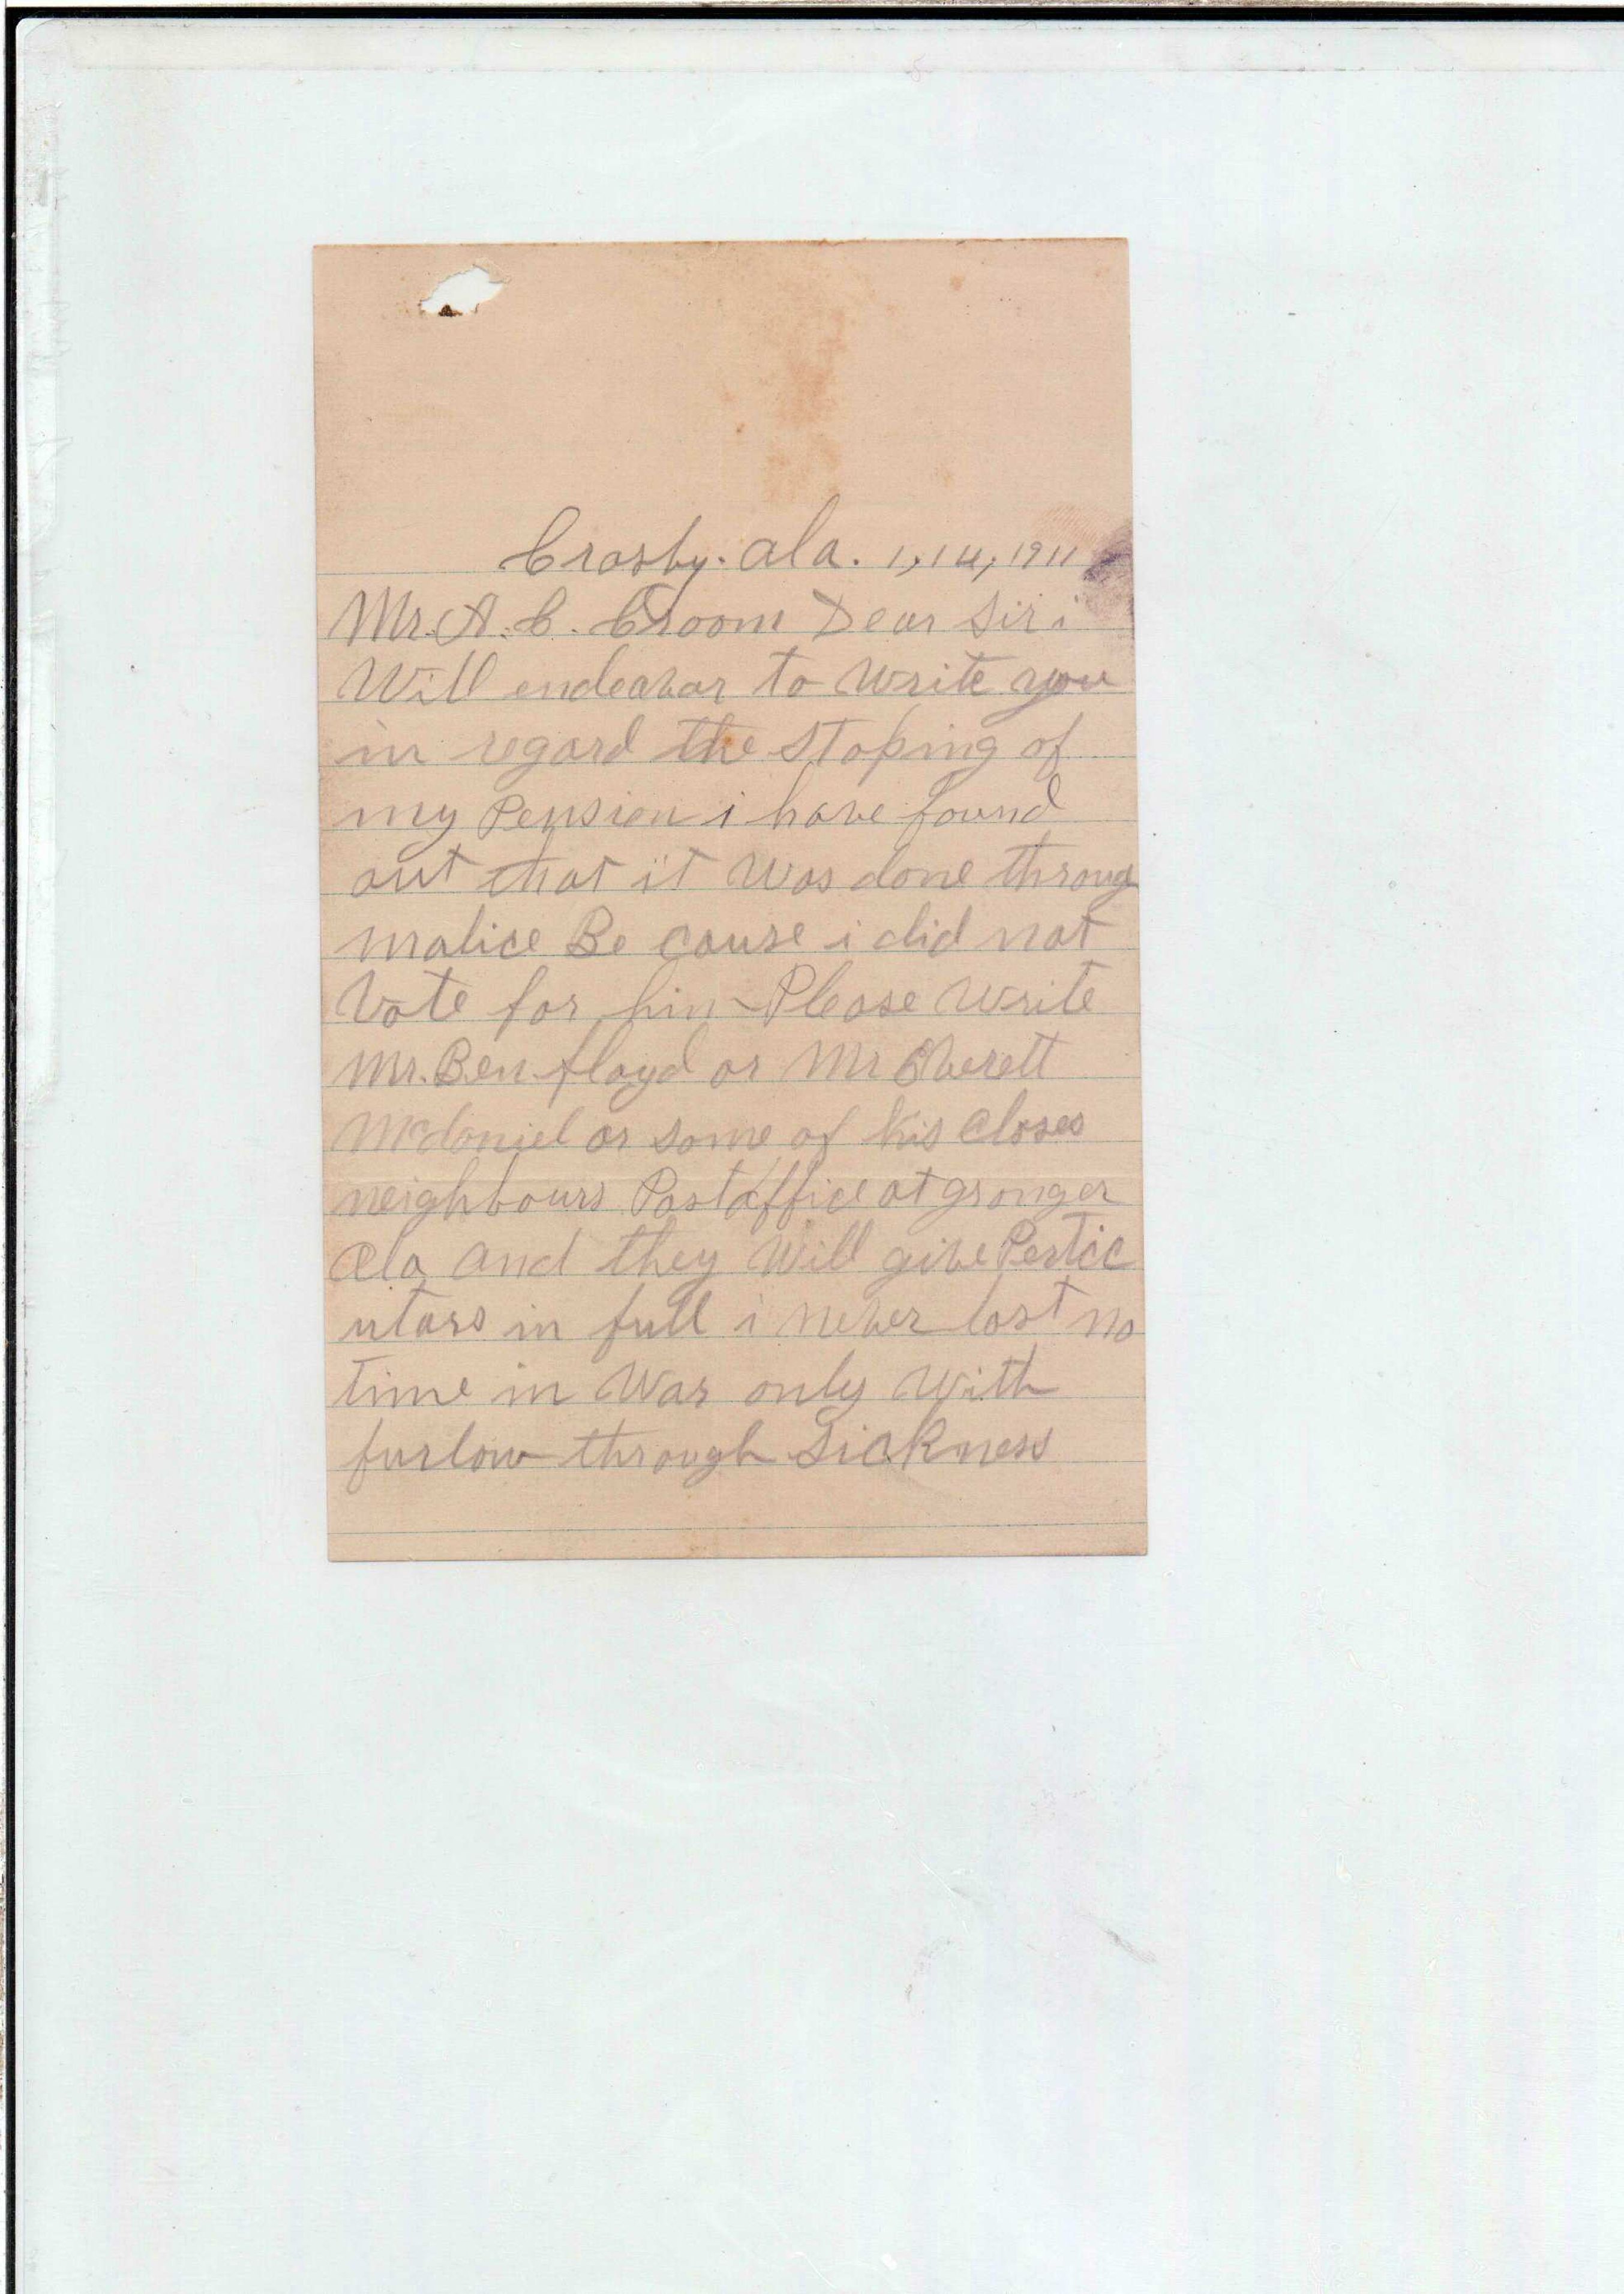 Crosby. ala. 1,14,1911
Mr. A. C. Croom Dear Sir i
Will endeavor to Write you
in regard the Stoping of
my Pension i have found
out that it Was done throug
malice Be cause i did not
Vote for him Please Write
Mr. Ben. floyd or Mr Everett
Mcdaniel or some of his Closes
neighbours Postoffice at granger
Ala and they Will give Pertic
ulars in full i never lost no
time in War only With
furlow through Sickness